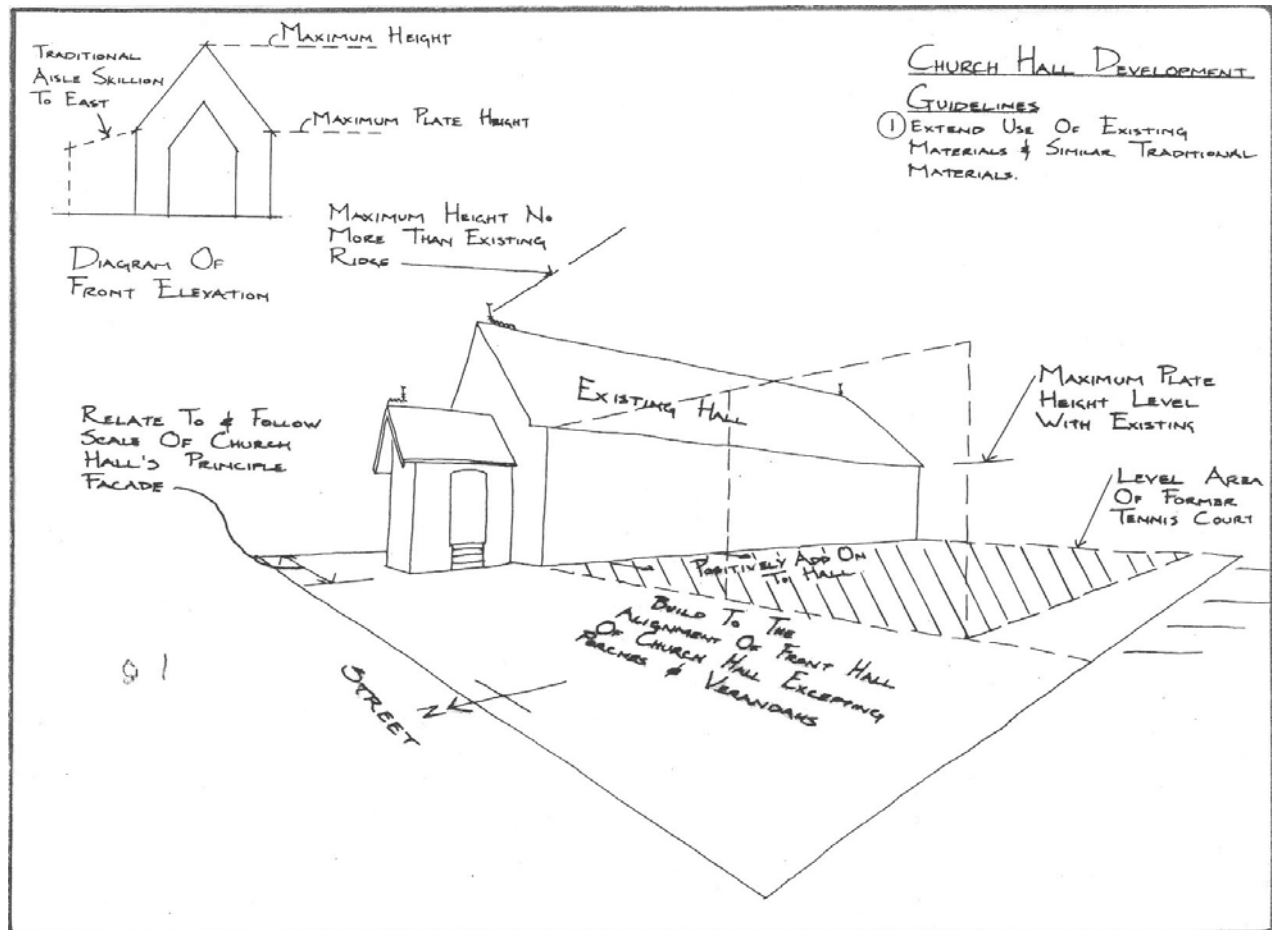 Maximum Height
Traditional
Aisle Skillion
To East
Maximum Plate Height
Diagram Of
Front Elevation
Church Hall Development
Guidelines
1 Extend Use Of Existing
Materials & Similar Traditional
Materials.
Maximum Height No
More Than Existing
Ridge
Existing Hall
Maximum Plate
Height Level
With Existing
Relate To & Follow
Scale Of Church
Hall's Principle
Facade
Level Area
Of Former
Tennis Court
Positively Add On
To Hall
Build To The
Alignment Of Front Hall
Of Church Hall Excepting
Porches & Verandahs
Street
N